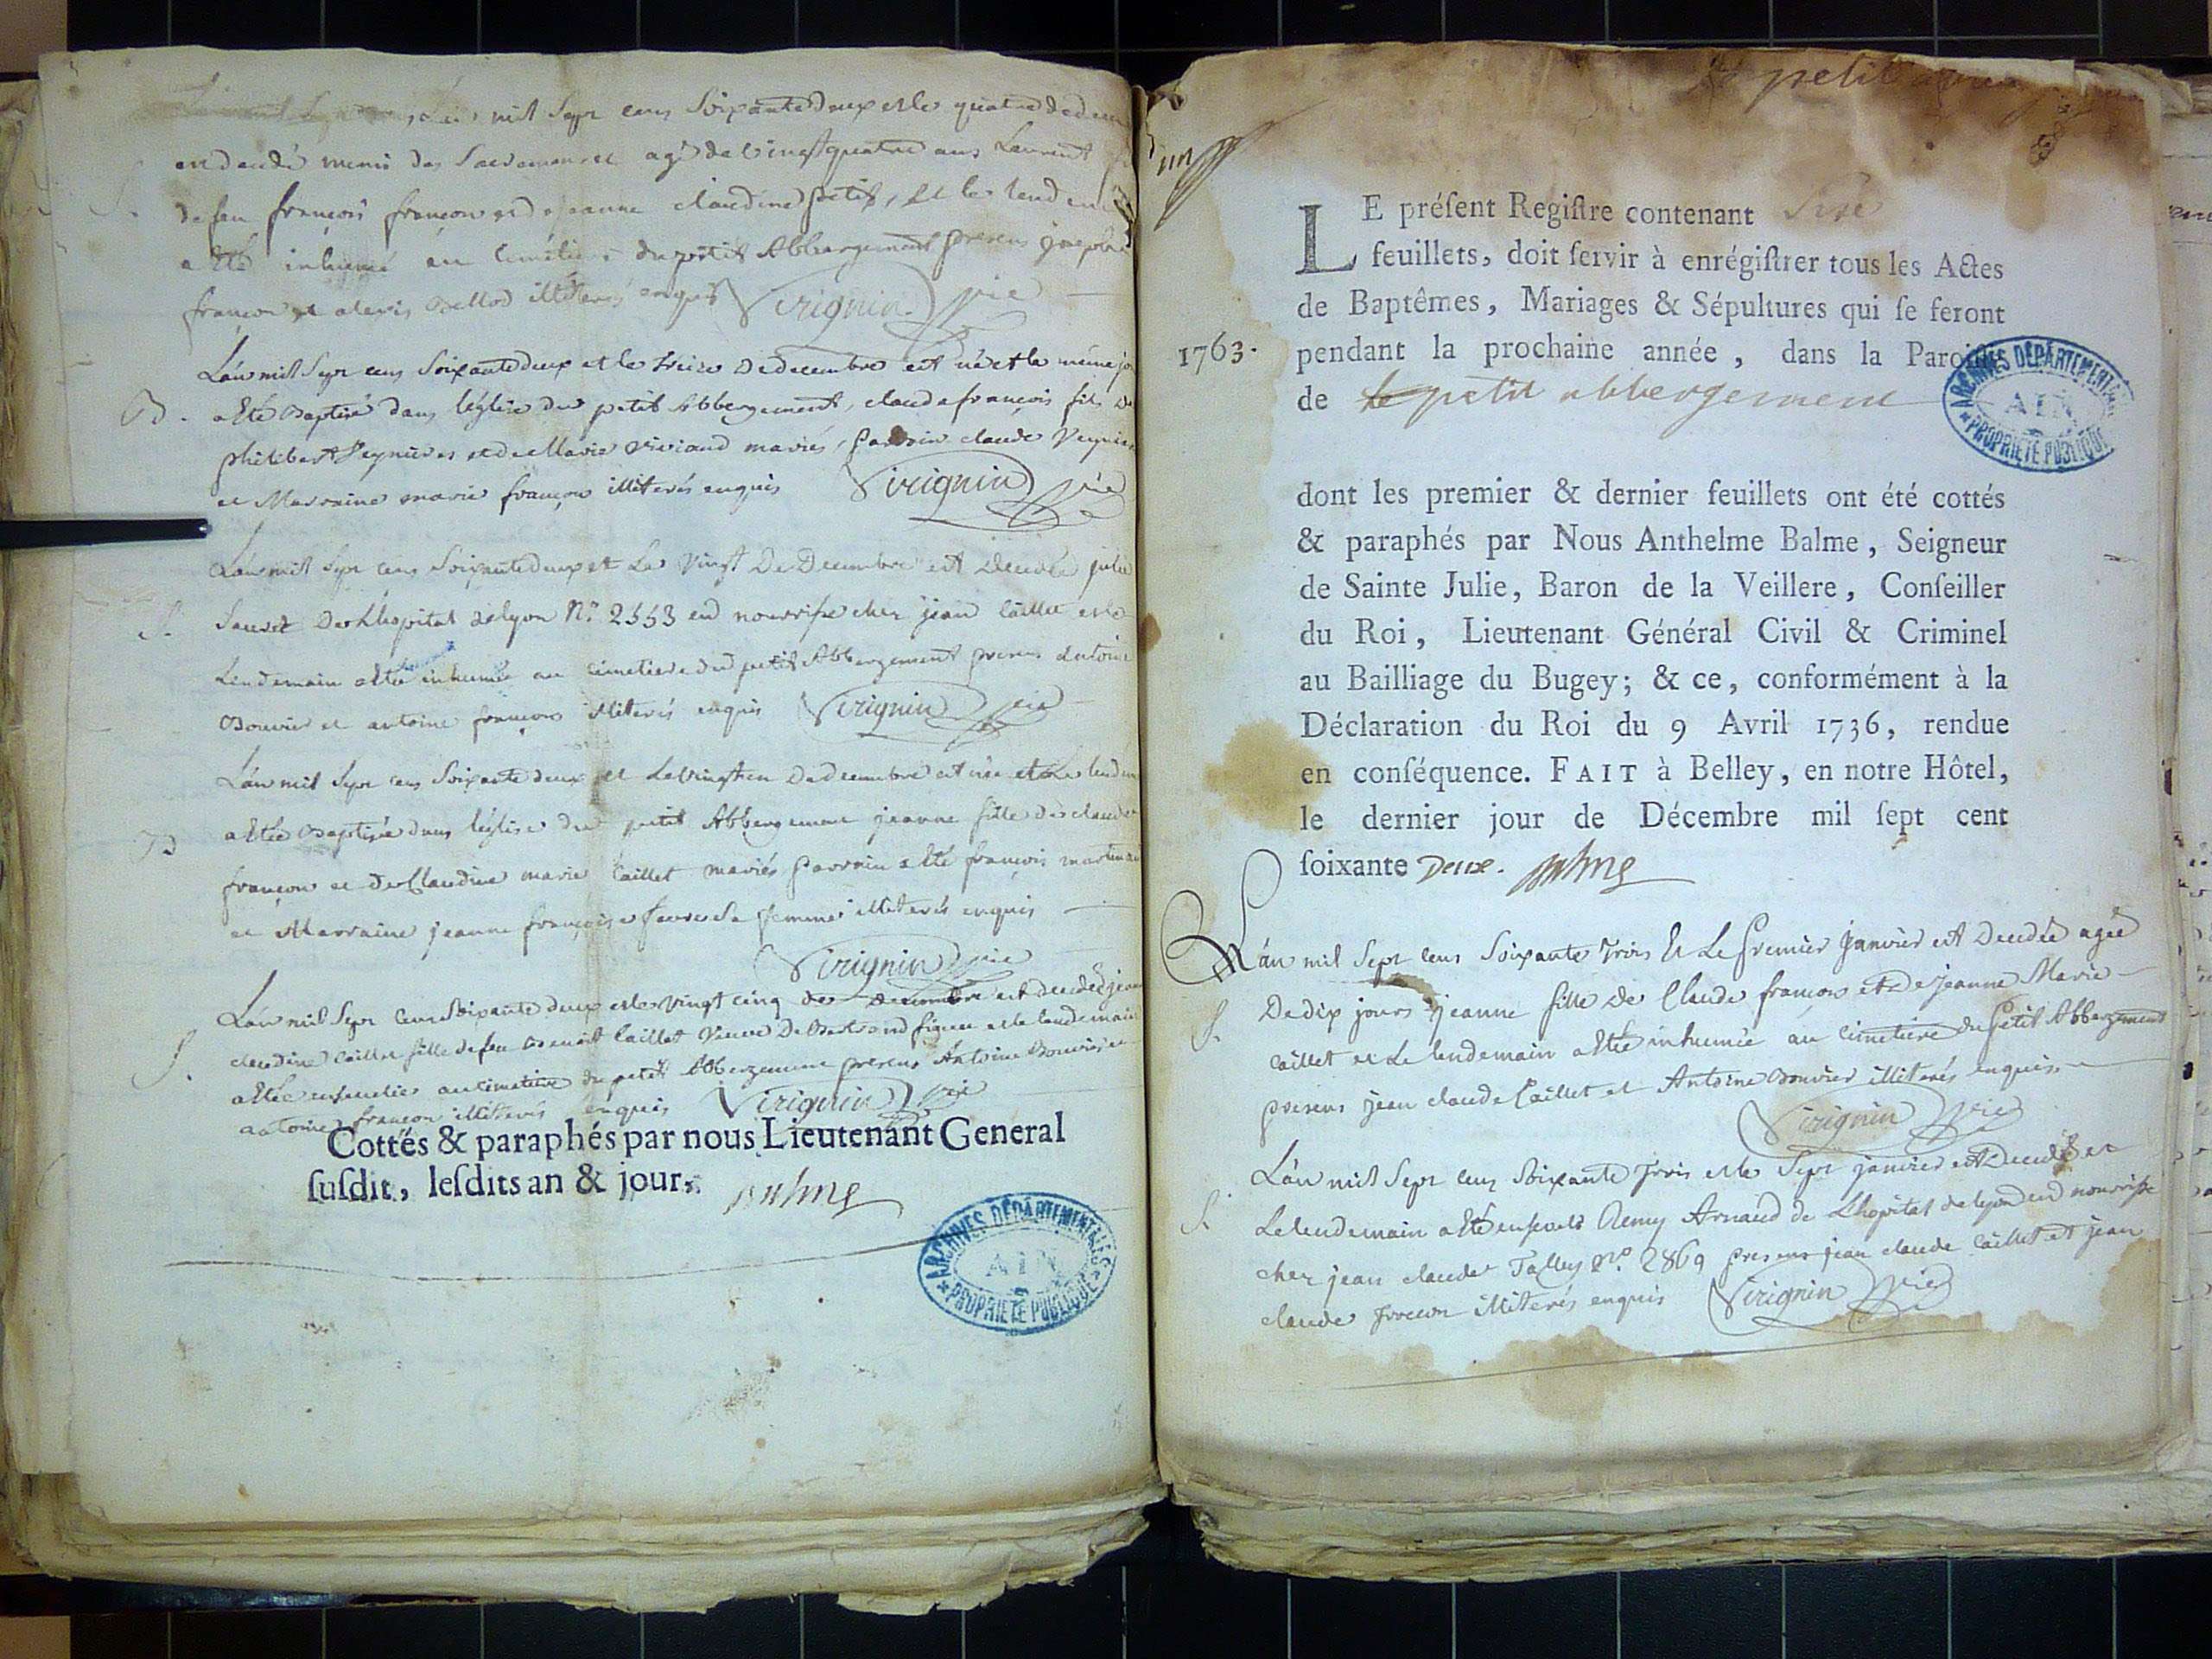 mil Sept cens Soixante deux et le quatre de decem
est decedé muni des Sacremens et agé de vingt quatre ans Laurent
S. de feu françois françon et de jeanne claudine petit, et le lendem
a été inhumé au cimetiere du petit Abbergement presens joseph
françon et alexis illiterés enquis Virignin vic
L'an mil Sept cens Soixante deux et le treize de decembre est né et le même jo
B. a été Baptisé dans l'église du petit Abbergement, claude françois fils de
philibert Peynieres et de Marie viviand mariés, Parrain claude Peynier
et Marraine marie françon illiterés enquis Virignin vic
L'an mil Sept cens Soixante deux et Le Vingt De Decembre est Decedée julie
S. Sauvet De Lhopital de lyon N.º 2553 en nourrisse chez jean Caillet et le
Lendemain a été inhumée au cimetiere du petit Abbergement presens Antoine
Bouvier et antoine françon illiterés enquis Virignin vic
L'an mil Sept cens Soixante deux et Le vingt un De decembre est née et Le lendem
B a été Baptisée dans l'église du petit Abbergement jeanne fille de claude
françon et de Claudine marie Caillet mariés Parrain a été françois martin
et Marraine jeanne françoise favre Sa femme illiterés enquis
Virignin vic
L'an mil Sept cens Soixante deux et le vingt cinq de decembre est decedée jean
S. claudine Caillet fille de feu Benoit Caillet Veuve De Bertrand et le lendemain
a été ensevelie au cimetiere du petit Abbergement presens Antoine Bouvier et
antoine françon illiterés enquis Virignin vic
Cottés & paraphés par nous Lieutenant General
ſuſdit, leſdits an & jour. Balme
ARCHIVES DÉPARTEMENTALES
AIN
PROPRIÉTÉ PUBLIQUE
petit
un
LE préſent Regiſtre contenant Six
feuillets, doit ſervir à enrégiſtrer tous les Actes
de Baptêmes, Mariages & Sépultures qui ſe feront
1763. pendant la prochaine année, dans la Paroiſſe
de Le petit abbergement
ARCHIVES DÉPARTEMENTALES
AIN
PROPRIÉTÉ PUBLIQUE
dont les premier & dernier feuillets ont été cottés
& paraphés par Nous Anthelme Balme, Seigneur
de Sainte Julie, Baron de la Veillere, Conſeiller
du Roi, Lieutenant Général Civil & Criminel
au Bailliage du Bugey; & ce, conformément à la
Déclaration du Roi du 9 Avril 1736, rendue
en conſéquence. FAIT à Belley, en notre Hôtel,
le dernier jour de Décembre mil ſept cent
ſoixante Deux. Balme
L'an mil Sept cens Soixante Trois Et Le Premier Janvier est Decedée agée
S. De dix jours jeanne fille De Claude françon et de jeanne Marie
Caillet et Le lendemain a été inhumée au Cimetiere du Petit Abbergement
presens jean claude Caillet et Antoine Bouvier illiterés enquis
Virignin vic
L'an mil Sept cens Soixante Trois et le Sept janvier est Decedé et
S. Le lendemain a été enseveli Remy Arnaud de Lhopital de lyon en nourrisse
chez jean claude Talley N.º 2869 presens jean claude Caillet et jean
claude françon illiterés enquis Virignin vic